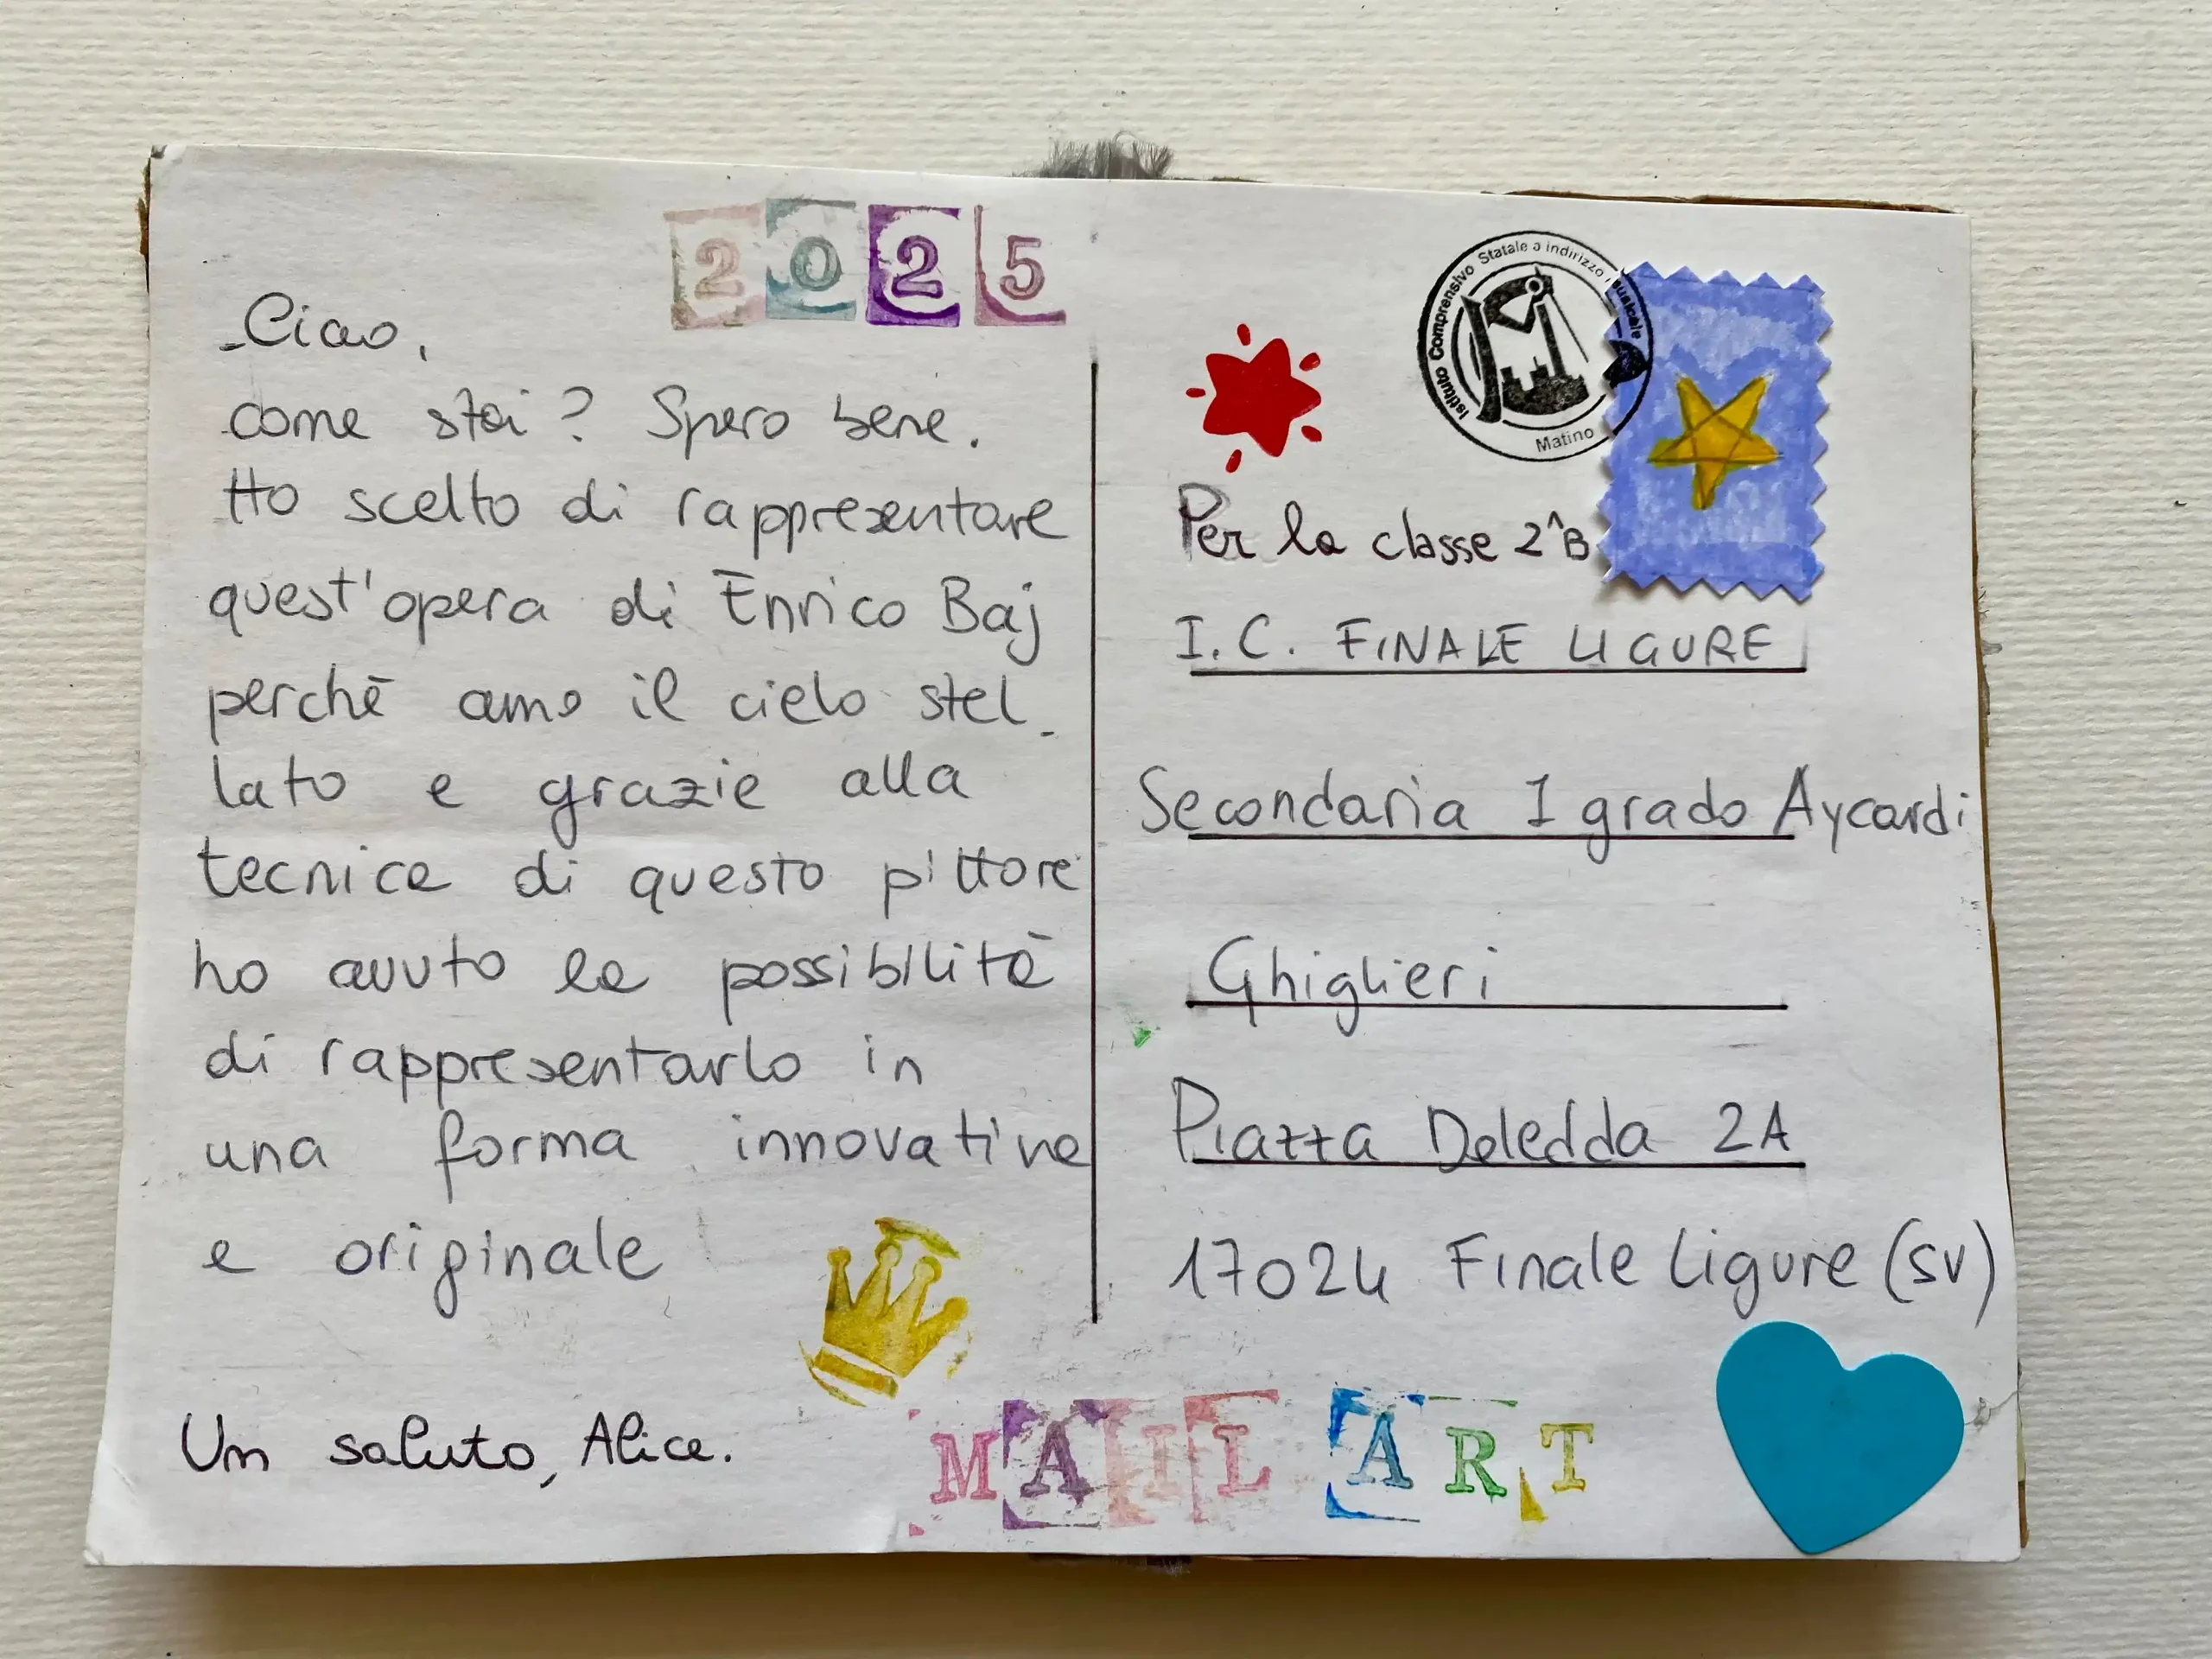 2025
Ciao,
come stai? Spero bene.
Ho scelto di rappresentare
quest'opera di Enrico Baj
perchè amo il cielo stel_
lato e grazie alla
tecnica di questo pittore
ho avuto la possibilità
di rappresentarlo in
una forma innovativa
e originale
Un saluto, Alice.
Istituto Comprensivo Statale a indirizzo musicale
Matino
Per la classe 2^B
I.C. FINALE LIGURE
Secondaria I grado Aycardi
Ghiglieri
Piazza Deledda 2A
17024 Finale Ligure (SV)
MAIL ART